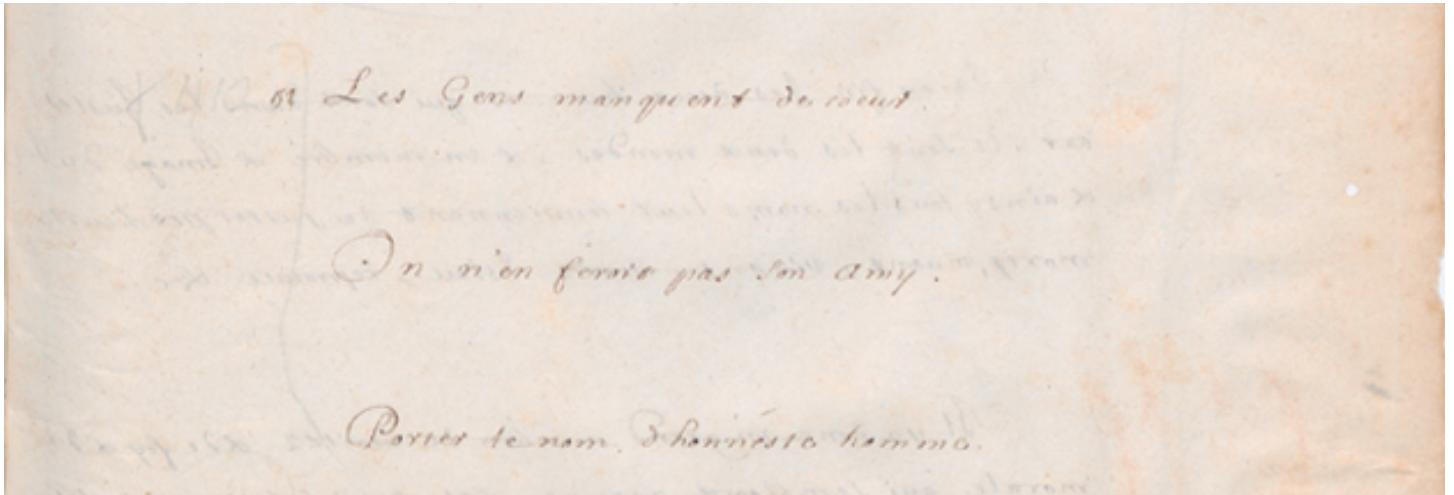 Les Gens manquent de coeur.
On n'en feroit pas son amy.
Porter le nom d'honneste homme.